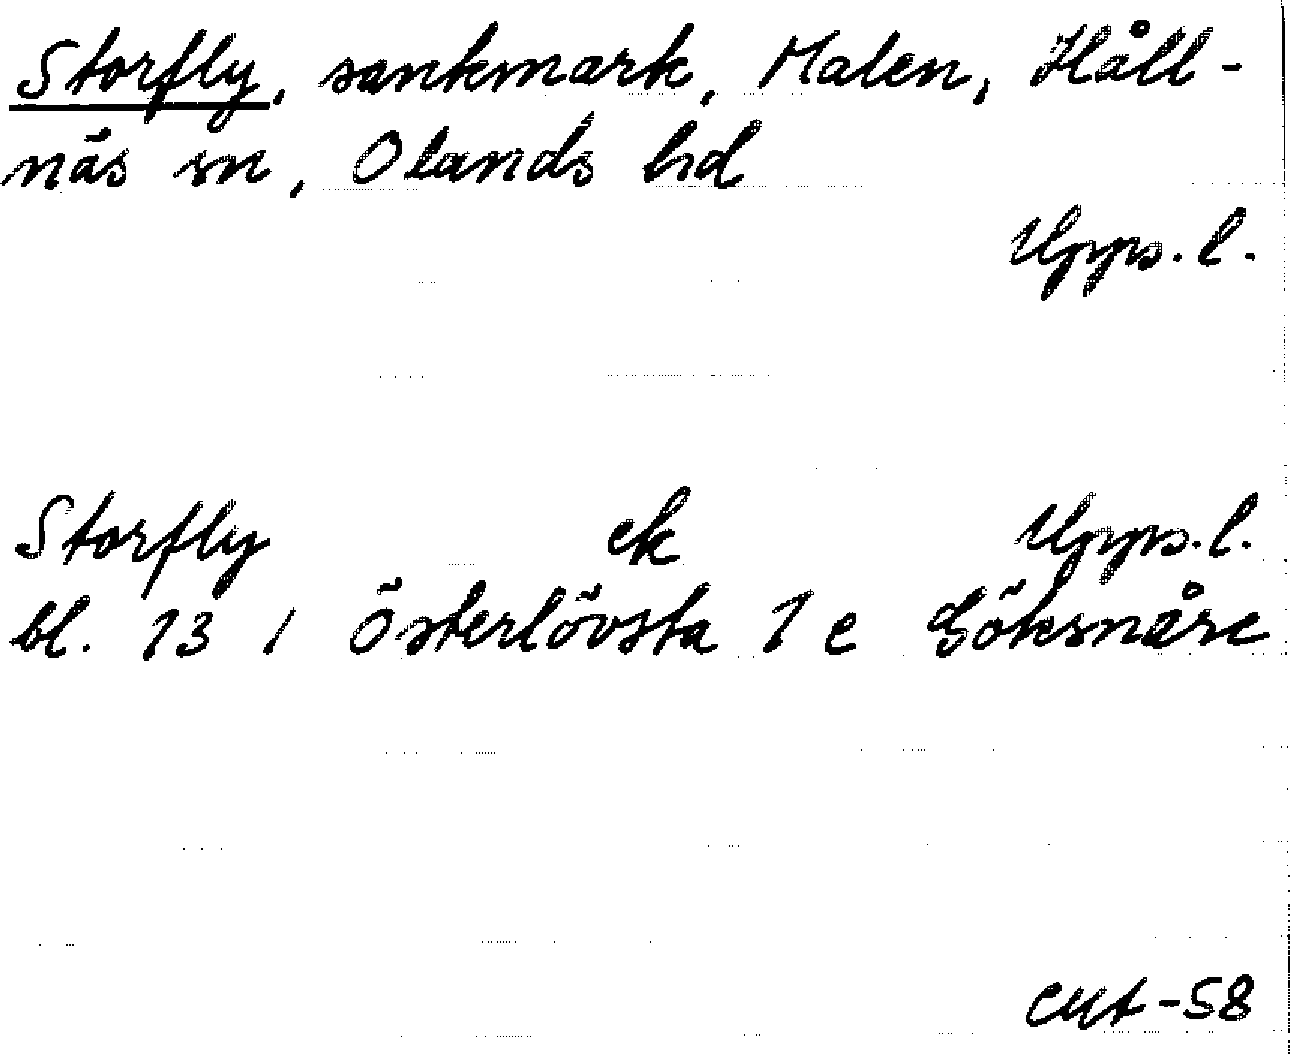 Storfly, sankmark, Malen, Håll-
näs sn, Olands hd
Upps. l.
Storfly ek Upps. l.
bl. 13 i Österlövsta 1 e Göksnåre
-58